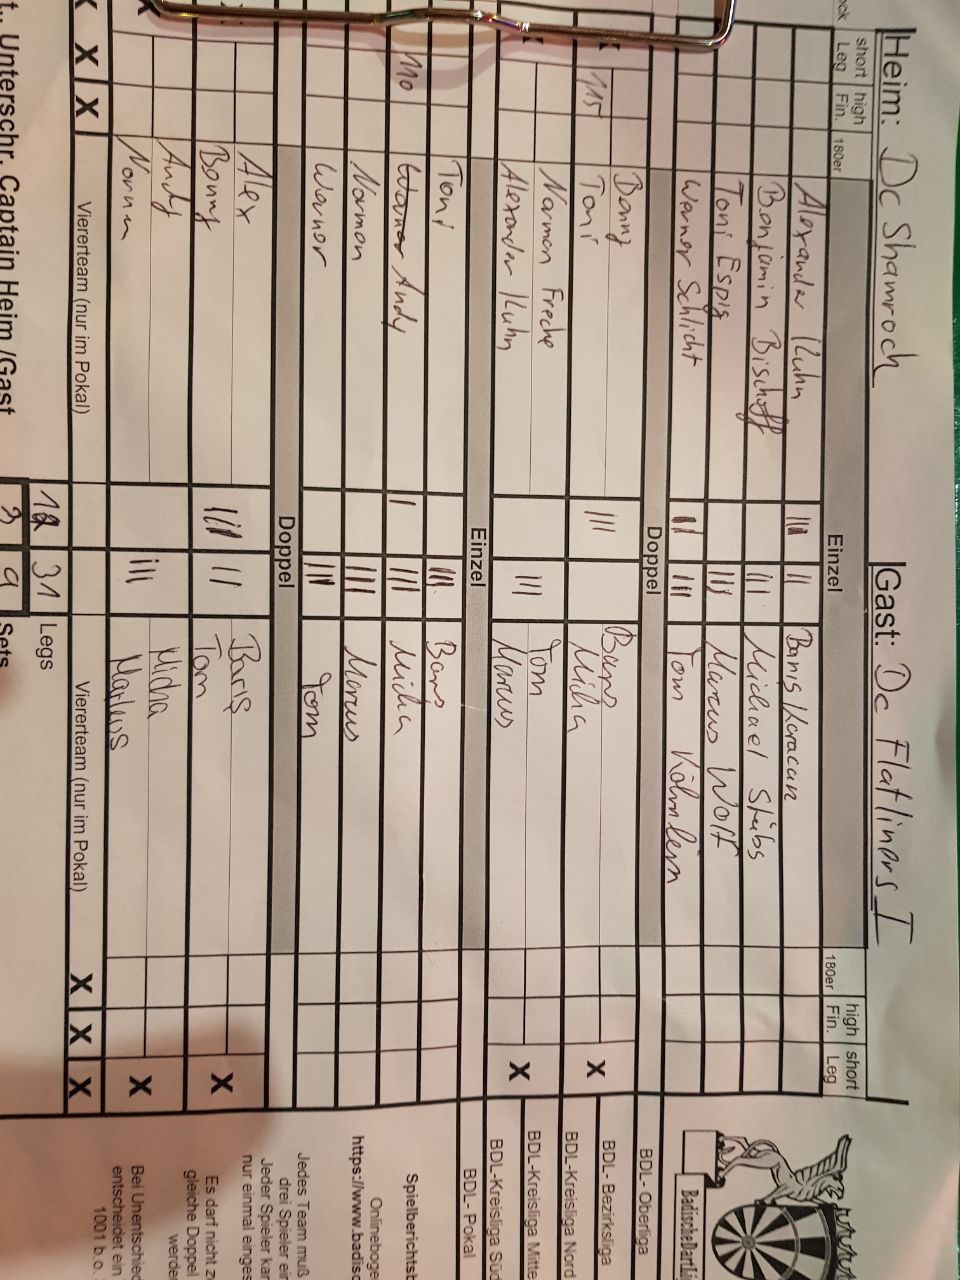 Heim: Dc Shamroch
Gast: Dc Flatliners I
short high 180er
Leg Fin.
Einzel
180er high short
Fin. Leg
Alexander Kuhn III II Baris Karacan
Benjamin Bischoff III Michael Stübs
Toni Espig III Marcus Wolf
Werner Schlicht II III Tom
Doppel
Benny Baris
115 Toni III Micha X
Norman Freche Tom
Alexander Kuhn III Marcus X
Einzel
Toni III Baris
110 Andy II III Micha
Norman III Marcus
Werner III Tom
Doppel
Alex Baris
Benny III II Tom X
Andy Micha
Norman III Markus X
X X Viererteam (nur im Pokal) Viererteam (nur im Pokal) X X X
12 31 Legs
3 9 Sets
t., Unterschr. Captain Heim /Gast
BDL - Oberliga
BDL - Bezirksliga
BDL-Kreisliga Nord
BDL-Kreisliga Mitte
BDL-Kreisliga Süd
BDL - Pokal
Spielberichtsb
Onlineboge
https://www.badisc
Jedes Team muß
drei Spieler ein
Jeder Spieler kan
nur einmal einges
Es darf nicht zw
gleiche Doppel
werde
Bei Unentschied
entscheidet ein
1001 b.o.